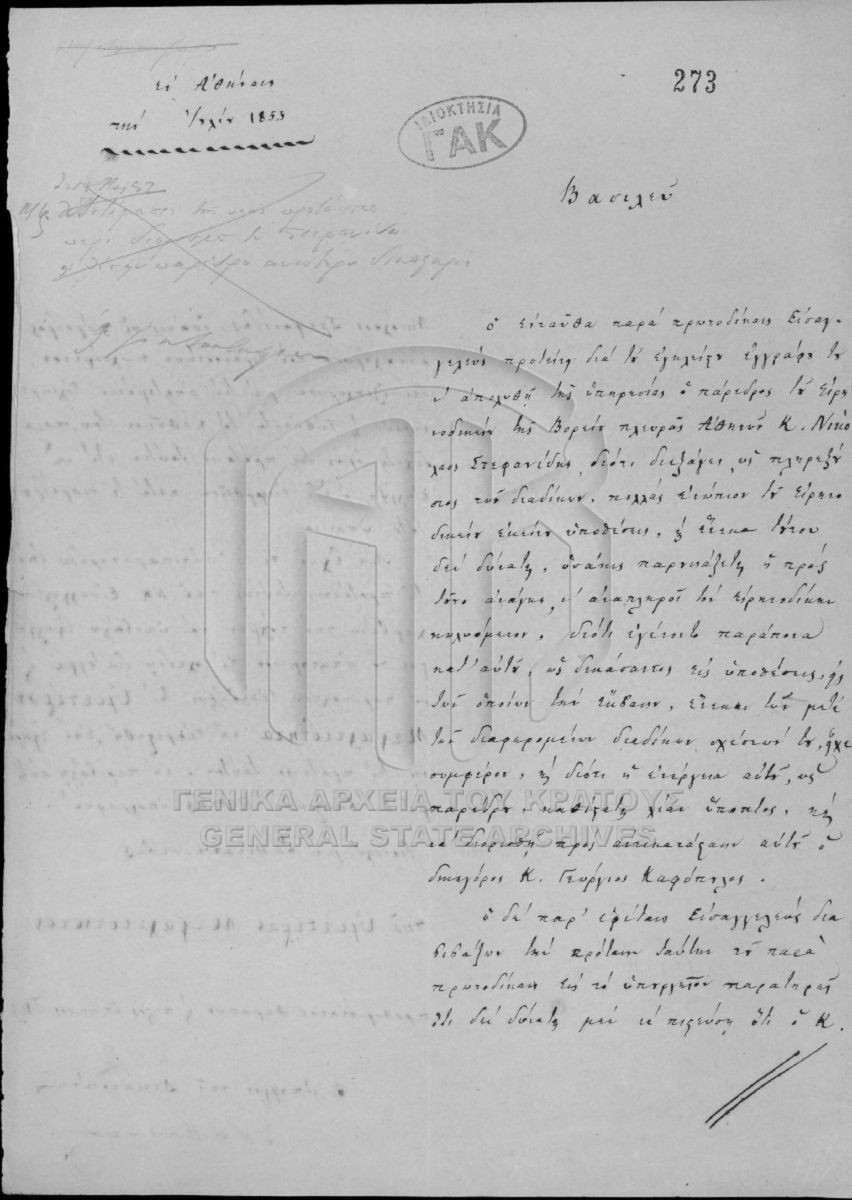 ἐν Ἀθήναις
τὴν Ἰουλίου 1853
273
ΙΔΙΟΚΤΗΣΙΑ
ΓΑΚ
Βασιλεῦ
Ὁ ἐνταῦθα παρὰ πρωτοδίκαις Εἰσαγ-
γελεὺς προτείνει διὰ τοῦ ἐγκλείστου ἐγγράφου του
ν' ἀπολυθῇ τῆς ὑπηρεσίας ὁ πάρεδρος τοῦ Εἰρη-
νοδικείου τῆς Βορείου πλευρᾶς Ἀθηνῶν Κ. Νικό-
λαος Στεφανίδης, διότι διεξάγει, ὡς πληρεξού-
σιος τῶν διαδίκων, πολλὰς ἐνώπιον τοῦ Εἰρηνο-
δικείου ἐκείνου ὑποθέσεις, καὶ ἕνεκα τούτου
δὲν δύναται, ὁσάκις παρουσιάζεται ἡ πρὸς
τοῦτο ἀνάγκη, ν' ἀναπληροῖ τὸν εἰρηνοδίκην
κωλυόμενον, διότι ἐγένοντο παράπονα
κατ' αὐτοῦ, ὡς δικάσαντος εἰς ὑποθέσεις, εἰς
τῶν ὁποίων τὴν ἔκβασιν, ἕνεκα τῶν μετὰ
τῶν διαφερομένων διαδίκων σχέσεών του, εἶχε
συμφέρον, καὶ διότι ἡ ἐνέργεια αὐτοῦ, ὡς
παρέδρου, καθίσταται λίαν ὕποπτος, καὶ
νὰ διορισθῇ πρὸς ἀντικατάστασιν αὐτοῦ ὁ
δικηγόρος Κ. Γεώργιος Καφόπυλος.
Ὁ δὲ παρ' ἐφέταις Εἰσαγγελεὺς δια-
βιβάζων τὴν πρότασιν ταύτην τοῦ παρὰ
πρωτοδίκαις εἰς τὸ ὑπουργεῖον παρατηρεῖ
ὅτι δὲν δύναται μὲν νὰ πιστεύσῃ ὅτι ὁ Κ.
ΓΕΝΙΚΑ ΑΡΧΕΙΑ ΤΟΥ ΚΡΑΤΟΥΣ
GENERAL STATE ARCHIVES